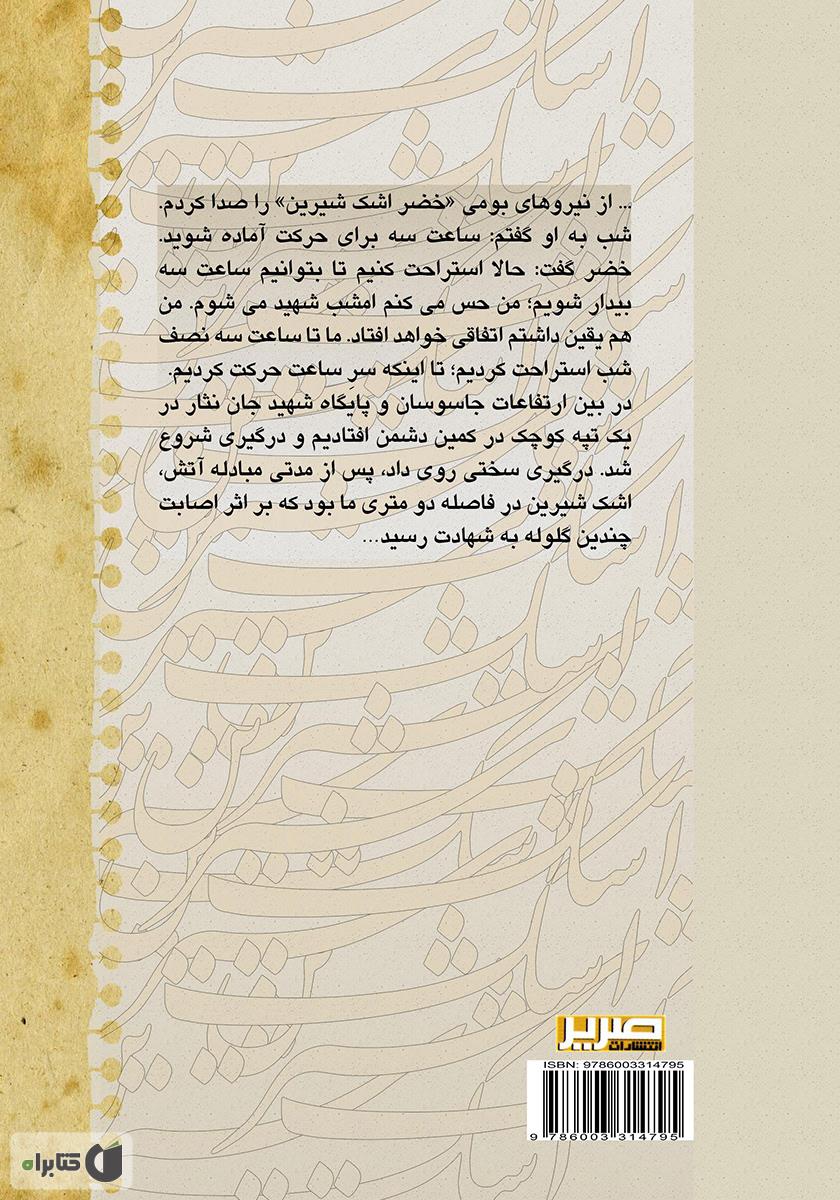 ... از نیروهای بومی «خضر اشک شیرین» را صدا کردم.
شب به او گفتم: ساعت سه برای حرکت آماده شوید.
خضر گفت: حالا استراحت کنیم تا بتوانیم ساعت سه
بیدار شویم؛ من حس می کنم امشب شهید می شوم. من
هم یقین داشتم اتفاقی خواهد افتاد. ما تا ساعت سه نصف
شب استراحت کردیم؛ تا اینکه سرِ ساعت حرکت کردیم.
در بین ارتفاعات جاسوسان و پایگاه شهید جان نثار در
یک تپه کوچک در کمین دشمن افتادیم و درگیری شروع
شد. درگیری سختی روی داد، پس از مدتی مبادله آتش،
اشک شیرین در فاصله دو متری ما بود که بر اثر اصابت
چندین گلوله به شهادت رسید...
صریر
انتشارات
ISBN: 9786003314795
9 786003 314795
کتابراه